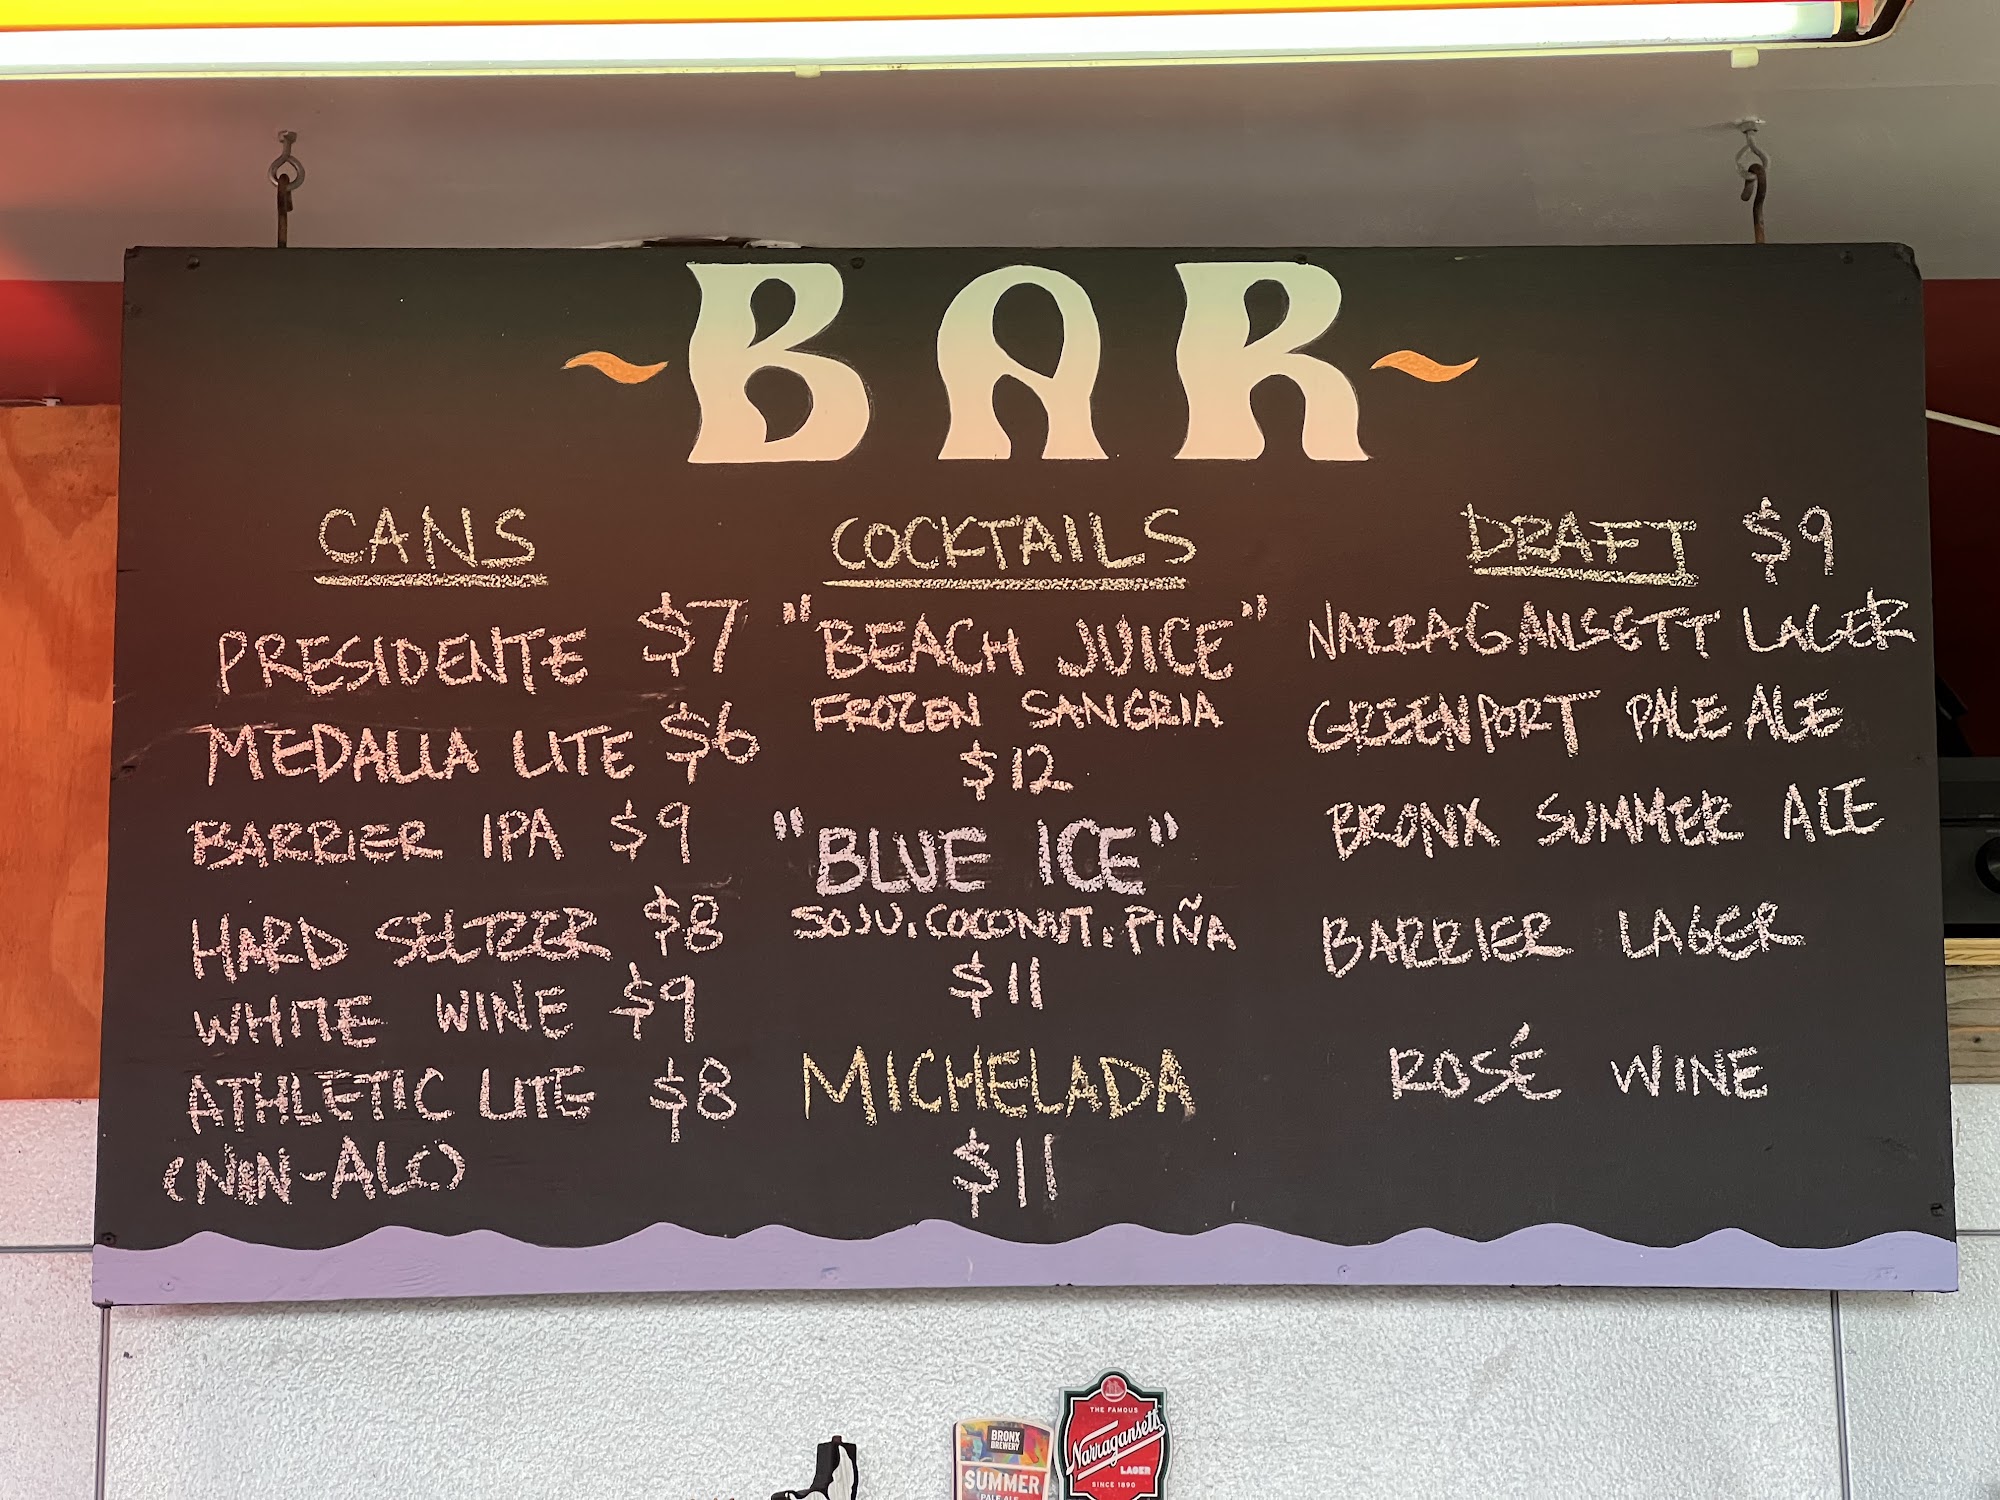 ~BAR~
CANS
PRESIDENTE $7
MEDALLA LITE $6
BARRIER IPA $9
HARD SELTZER $8
WHITE WINE $9
ATHLETIC LITE $8
(NIN-ALC)
COCKTAILS
"BEACH JUICE"
FROZEN SANGRIA
$12
"BLUE ICE"
SOJU, COCONUT, PIÑA
$11
MICHELADA
$11
DRAFT $9
NARRAGANSETT LAGER
GREENPORT PALE ALE
BRONX SUMMER ALE
BARRIER LAGER
ROSÉ WINE
BRONX
BREWERY
SUMMER
PALE ALE
THE FAMOUS
Narragansett
LAGER
SINCE 1890